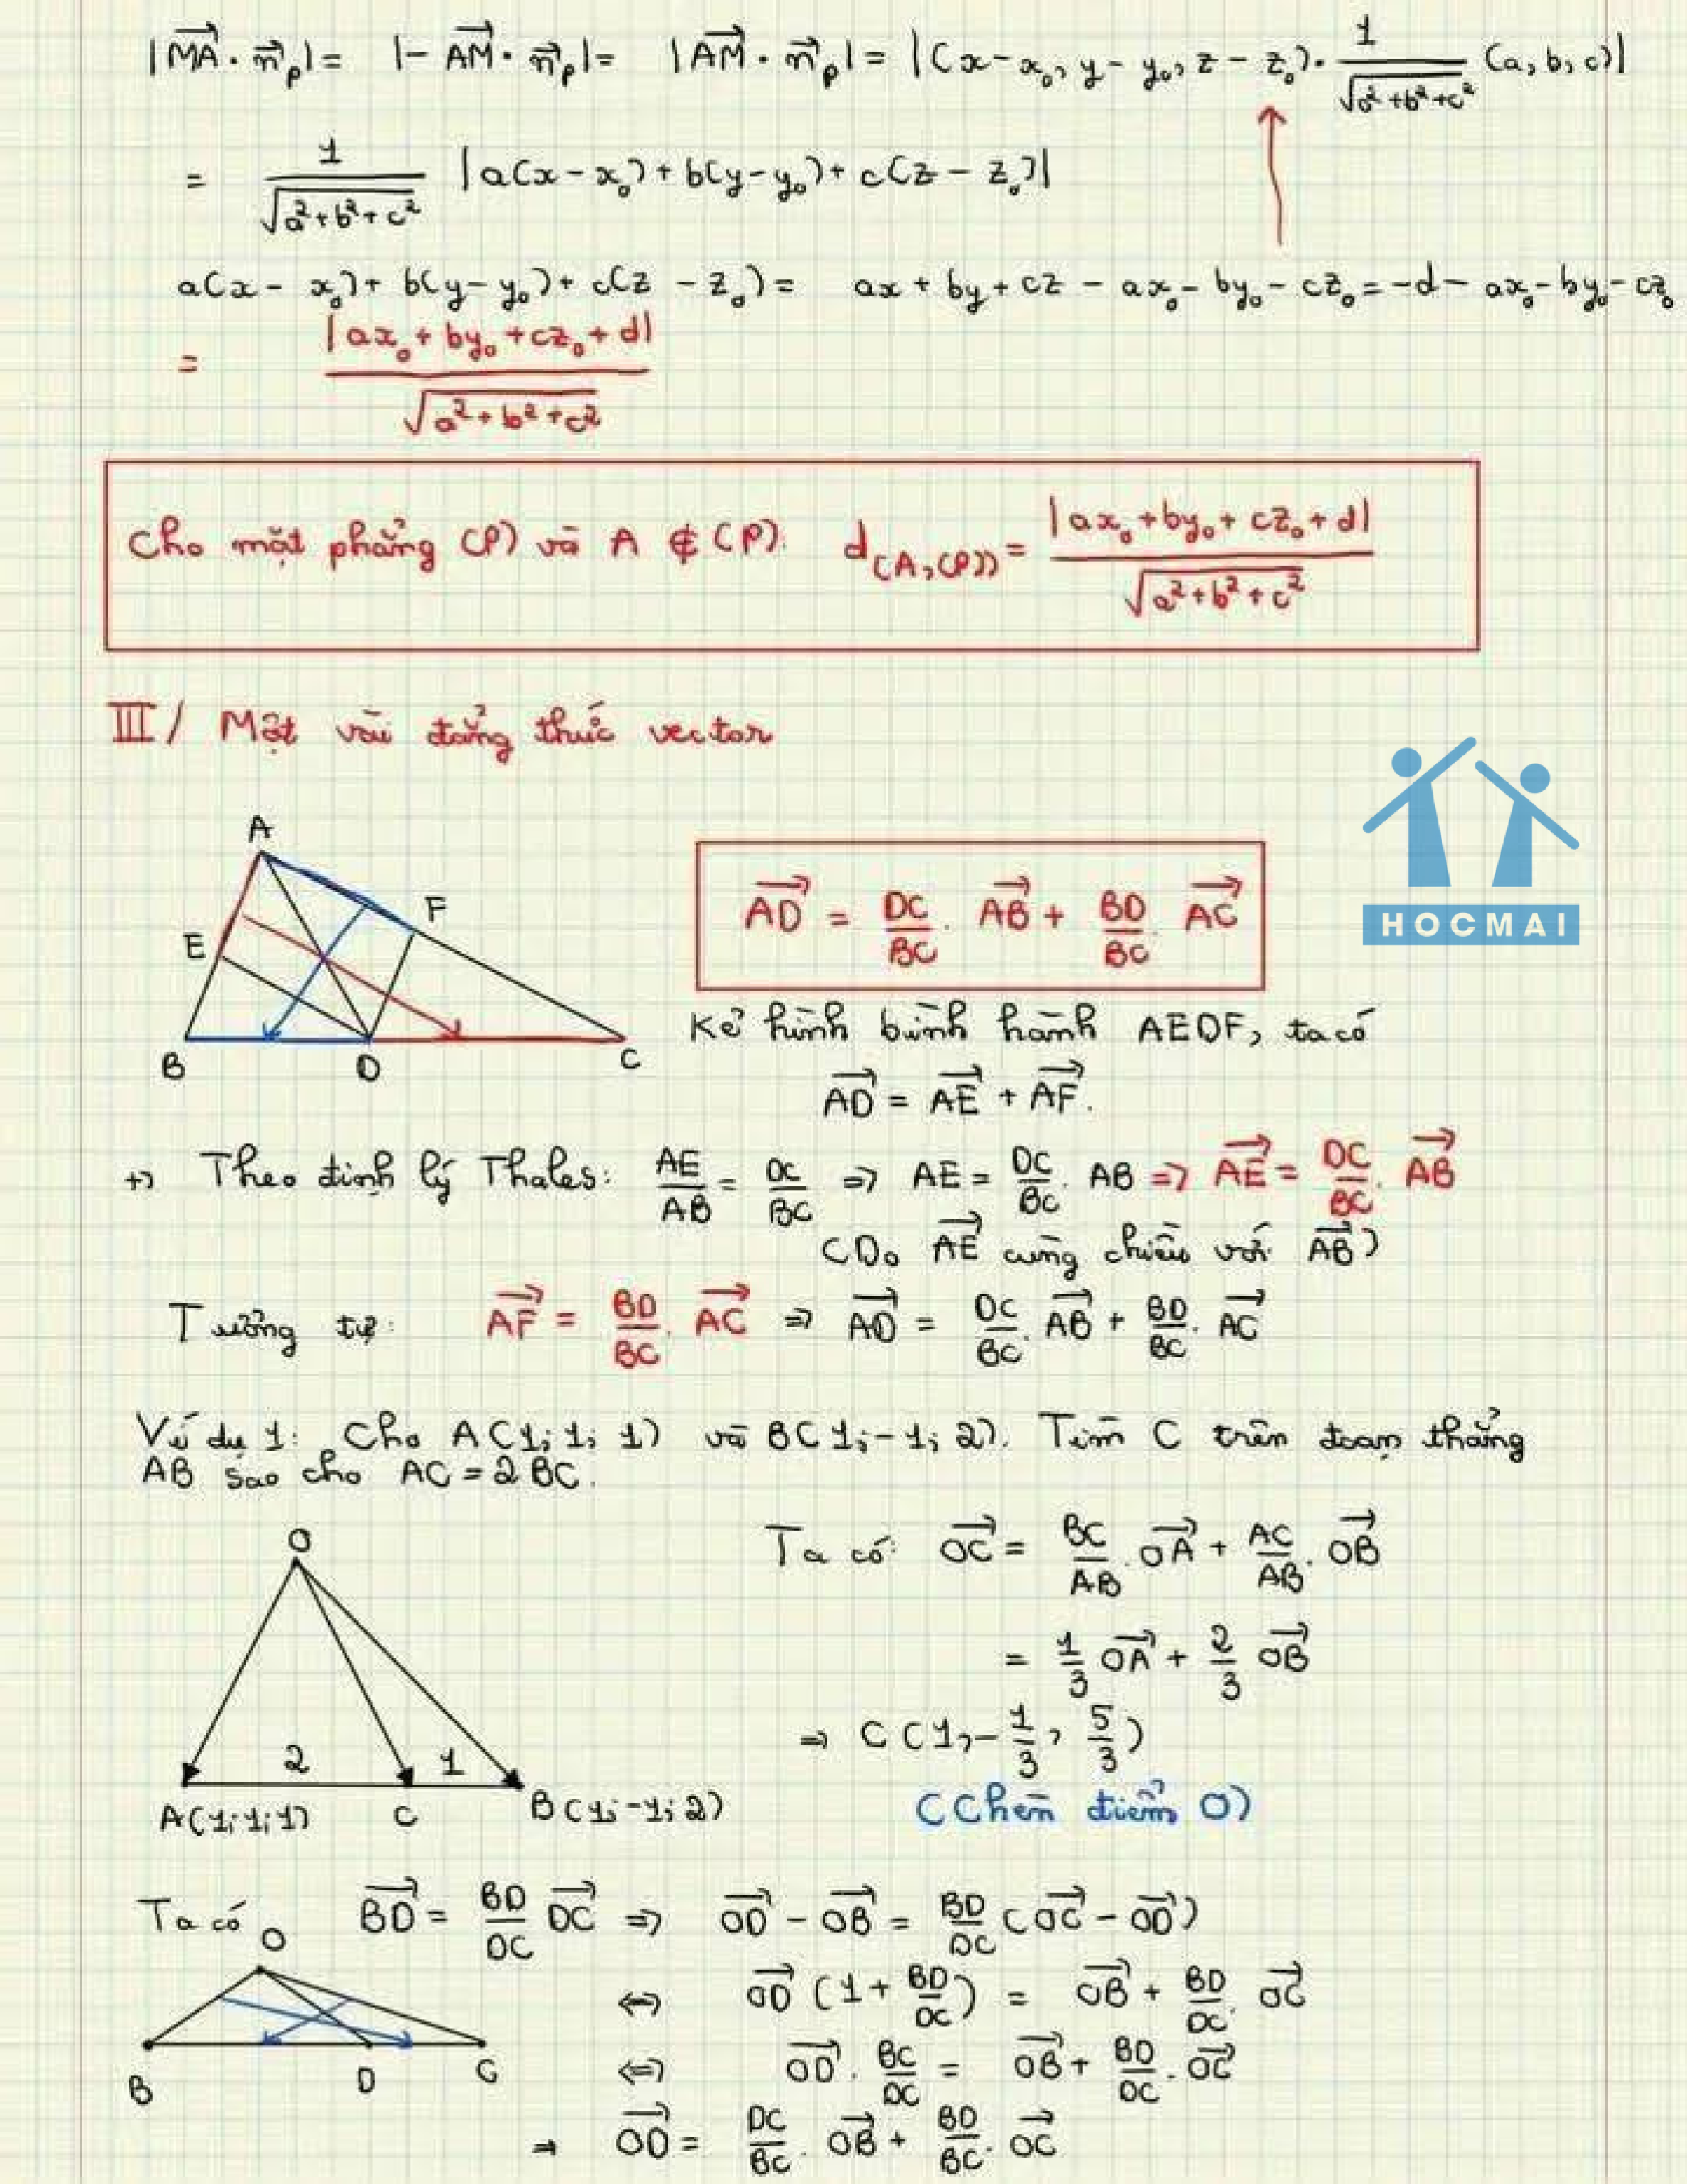 |MA⃗ . n⃗ₚ| = |- AM⃗ . n⃗ₚ| = |AM⃗ . n⃗ₚ| = |(x - x₀, y - y₀, z - z₀). 1/√(a²+b²+c²) (a, b, c)|
= 1/√(a²+b²+c²) |a(x - x₀) + b(y - y₀) + c(z - z₀)|
a(x - x₀) + b(y - y₀) + c(z - z₀) = ax + by + cz - ax₀ - by₀ - cz₀ = -d - ax₀ - by₀ - cz₀
= |ax₀ + by₀ + cz₀ + d| / √(a²+b²+c²)
Cho mặt phẳng (P) và A ∉ (P). d(A,(P)) = |ax₀ + by₀ + cz₀ + d| / √(a²+b²+c²)
III/ Một vài đẳng thức vector
HOCMAI
A
F
E
B
D
C
AD⃗ = DC/BC . AB⃗ + BD/BC . AC⃗
Kẻ hình bình hành AEDF, ta có
AD⃗ = AE⃗ + AF⃗.
+) Theo định lý Thales: AE/AB = DC/BC => AE = DC/BC . AB => AE⃗ = DC/BC . AB⃗
(Do AE⃗ cùng chiều với AB⃗)
Tương tự: AF⃗ = BD/BC . AC⃗ => AD⃗ = DC/BC . AB⃗ + BD/BC . AC⃗
Ví dụ 1: Cho A(1; 1; 1) và B(1; -1; 2). Tìm C trên đoạn thẳng
AB sao cho AC = 2BC.
O
2
1
A(1;1;1)
C
B(1;-1;2)
Ta có: OC⃗ = BC/AB . OA⃗ + AC/AB . OB⃗
= 1/3 OA⃗ + 2/3 OB⃗
=> C(1, -1/3, 5/3)
(Chèn điểm O)
Ta có BD⃗ = BD/DC DC⃗ => OD⃗ - OB⃗ = BD/DC (OC⃗ - OD⃗)
O
B
D
C
<=> OD⃗ (1 + BD/DC) = OB⃗ + BD/DC . OC⃗
<=> OD⃗ . BC/DC = OB⃗ + BD/DC . OC⃗
=> OD⃗ = DC/BC . OB⃗ + BD/BC . OC⃗